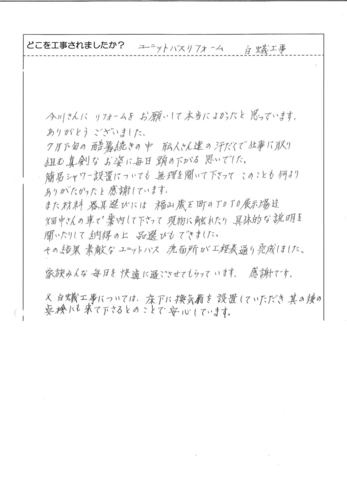 どこを工事されましたか？ ユニットバスリフォーム 白蟻工事
今川さんに リフォームを お願いして本当によかったと 思っています。
ありがとう ございました。
7月下旬の 酷暑続きの中 職人さん達の 汗だくで仕事に取り
組む真剣な お姿に毎日 頭の下がる 思いでした。
簡易シャワー設置についても 無理を聞いて下さって このことも 何より
ありがたかったと 感謝しています。
また材料 器具選びには 福山蔵王町のTOTO展示場迄
畑中さんの車で 案内して下さって 現物に触れたり 具体的な説明を
聞いたりして 納得の上 品選びもできました。
その結果 素敵なユニットバス 洗面所が工程表通り完成しました。
家族みんな 毎日を 快適に過ごさせてもらっています。 感謝です。
又 白蟻工事については、床下に換気扇を 設置していただき 其の後の
点検にも来て下さるとのことで 安心しています。